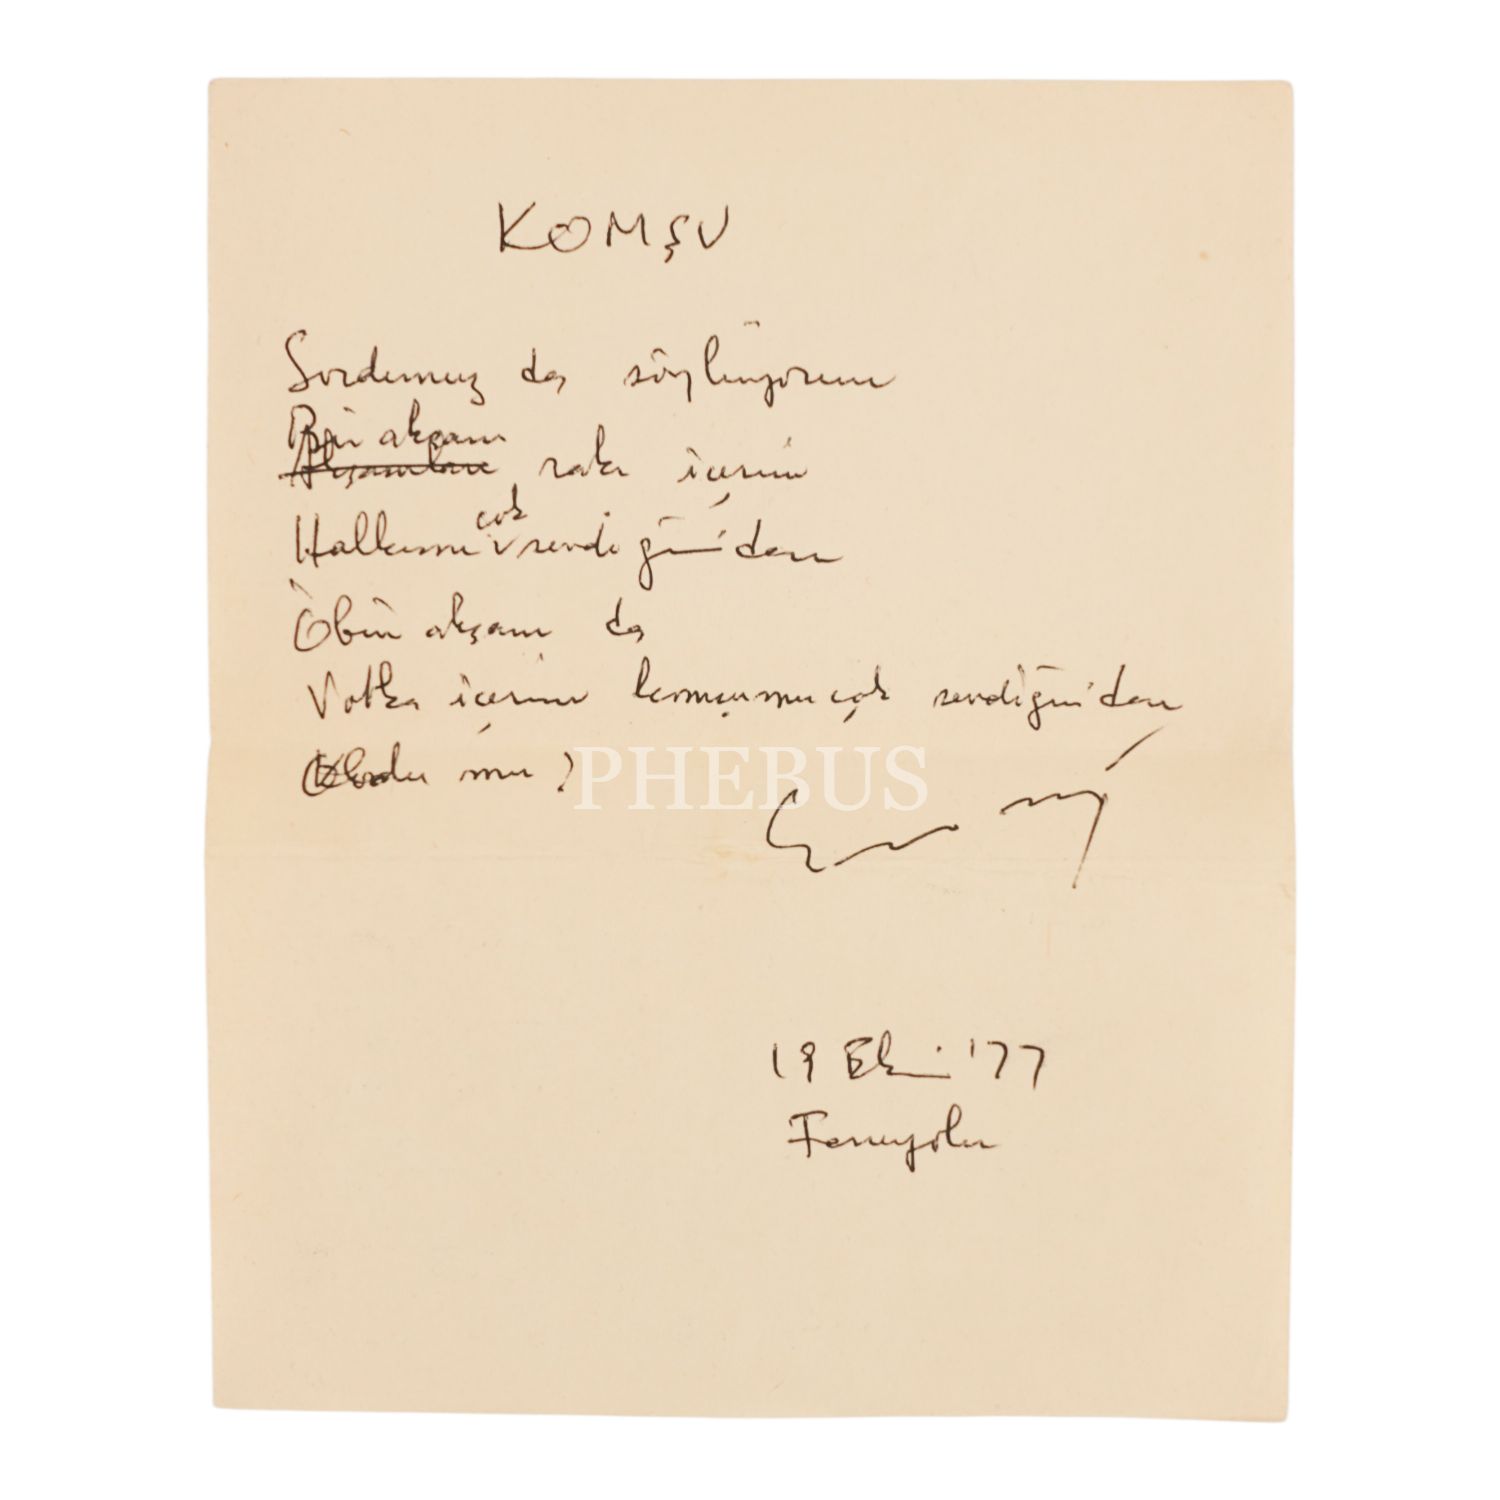 KOMŞU
Sordunuz da söylüyorum
Bir akşam
Akşamları rakı içerim
Halkımı çok sevdiğimden
Öbür akşam da
Votka içerim komşumu çok sevdiğimden
Oldu mu?
PHEBUS
19 Ekim '77
Feneryolu